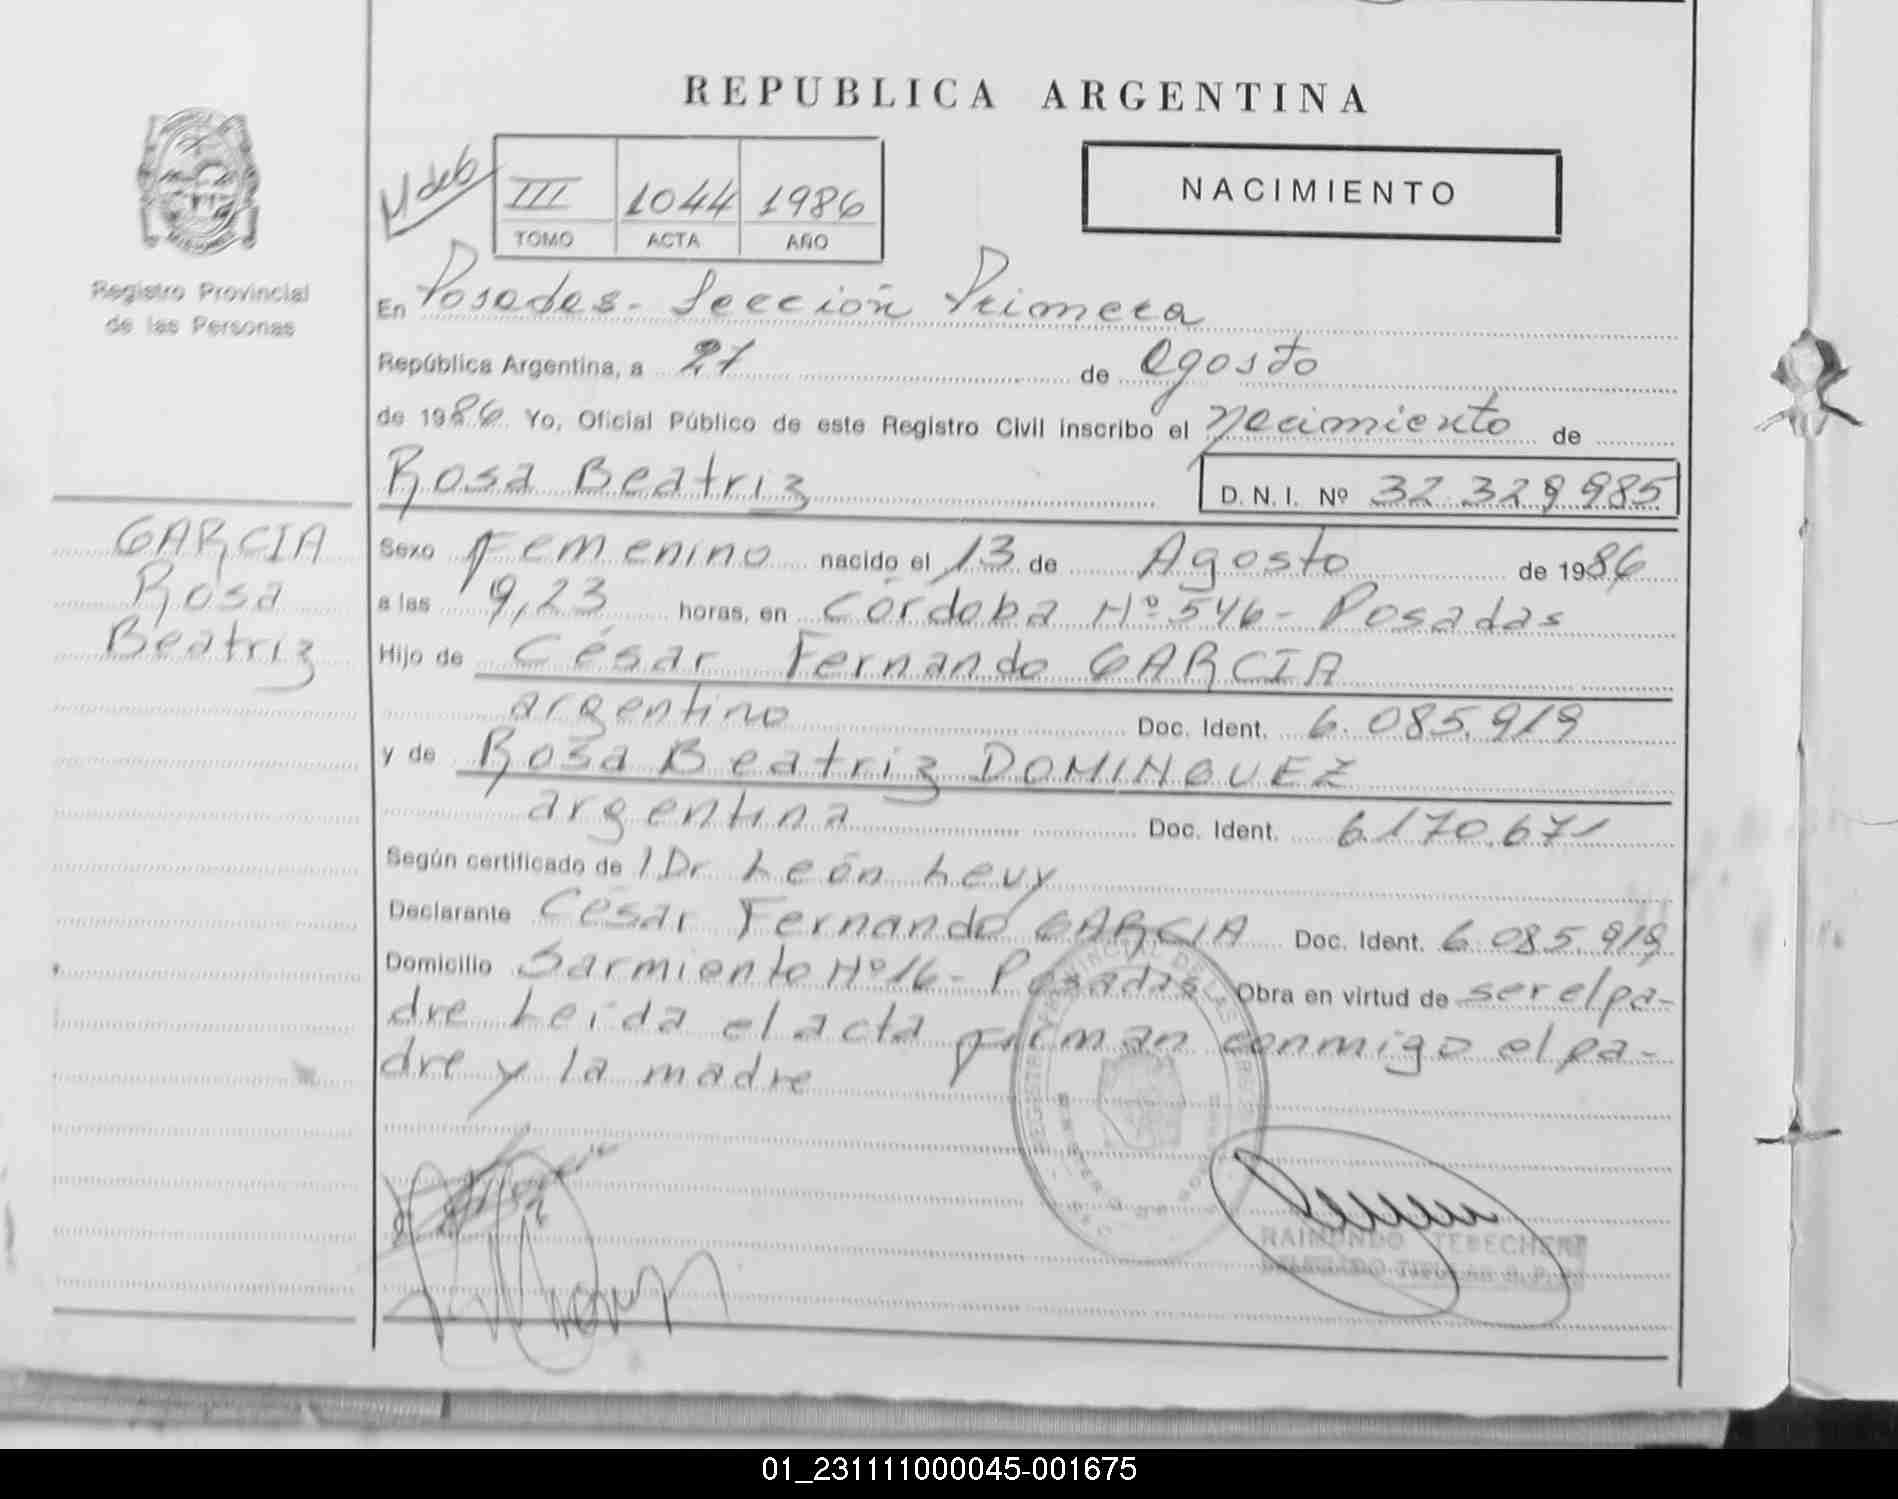 REPUBLICA ARGENTINA
III 1044 1986
TOMO ACTA AÑO
NACIMIENTO
Registro Provincial
de las Personas
En Posadas - Sección Primera
República Argentina, a 27 de Agosto
de 1986 Yo, Oficial Público de este Registro Civil inscribo el nacimiento de
Rosa Beatriz D. N. I. Nº 32.329.985
GARCIA
Rosa
Beatriz
Sexo Femenino nacido el 13 de Agosto de 1986
a las 9,23 horas, en Córdoba Nº 546 - Posadas
Hijo de César Fernando GARCIA
argentino Doc. Ident. 6.085.919
y de Rosa Beatriz DOMINGUEZ
argentina Doc. Ident. 6.170.671
Según certificado de l Dr León Levy
Declarante César Fernando GARCIA Doc. Ident. 6.085.919
Domicilio Sarmiento Nº 16 - Posadas Obra en virtud de ser el pa-
dre Leída el acta firman conmigo el pa-
dre y la madre
RAIMUNDO
01_231111000045-001675